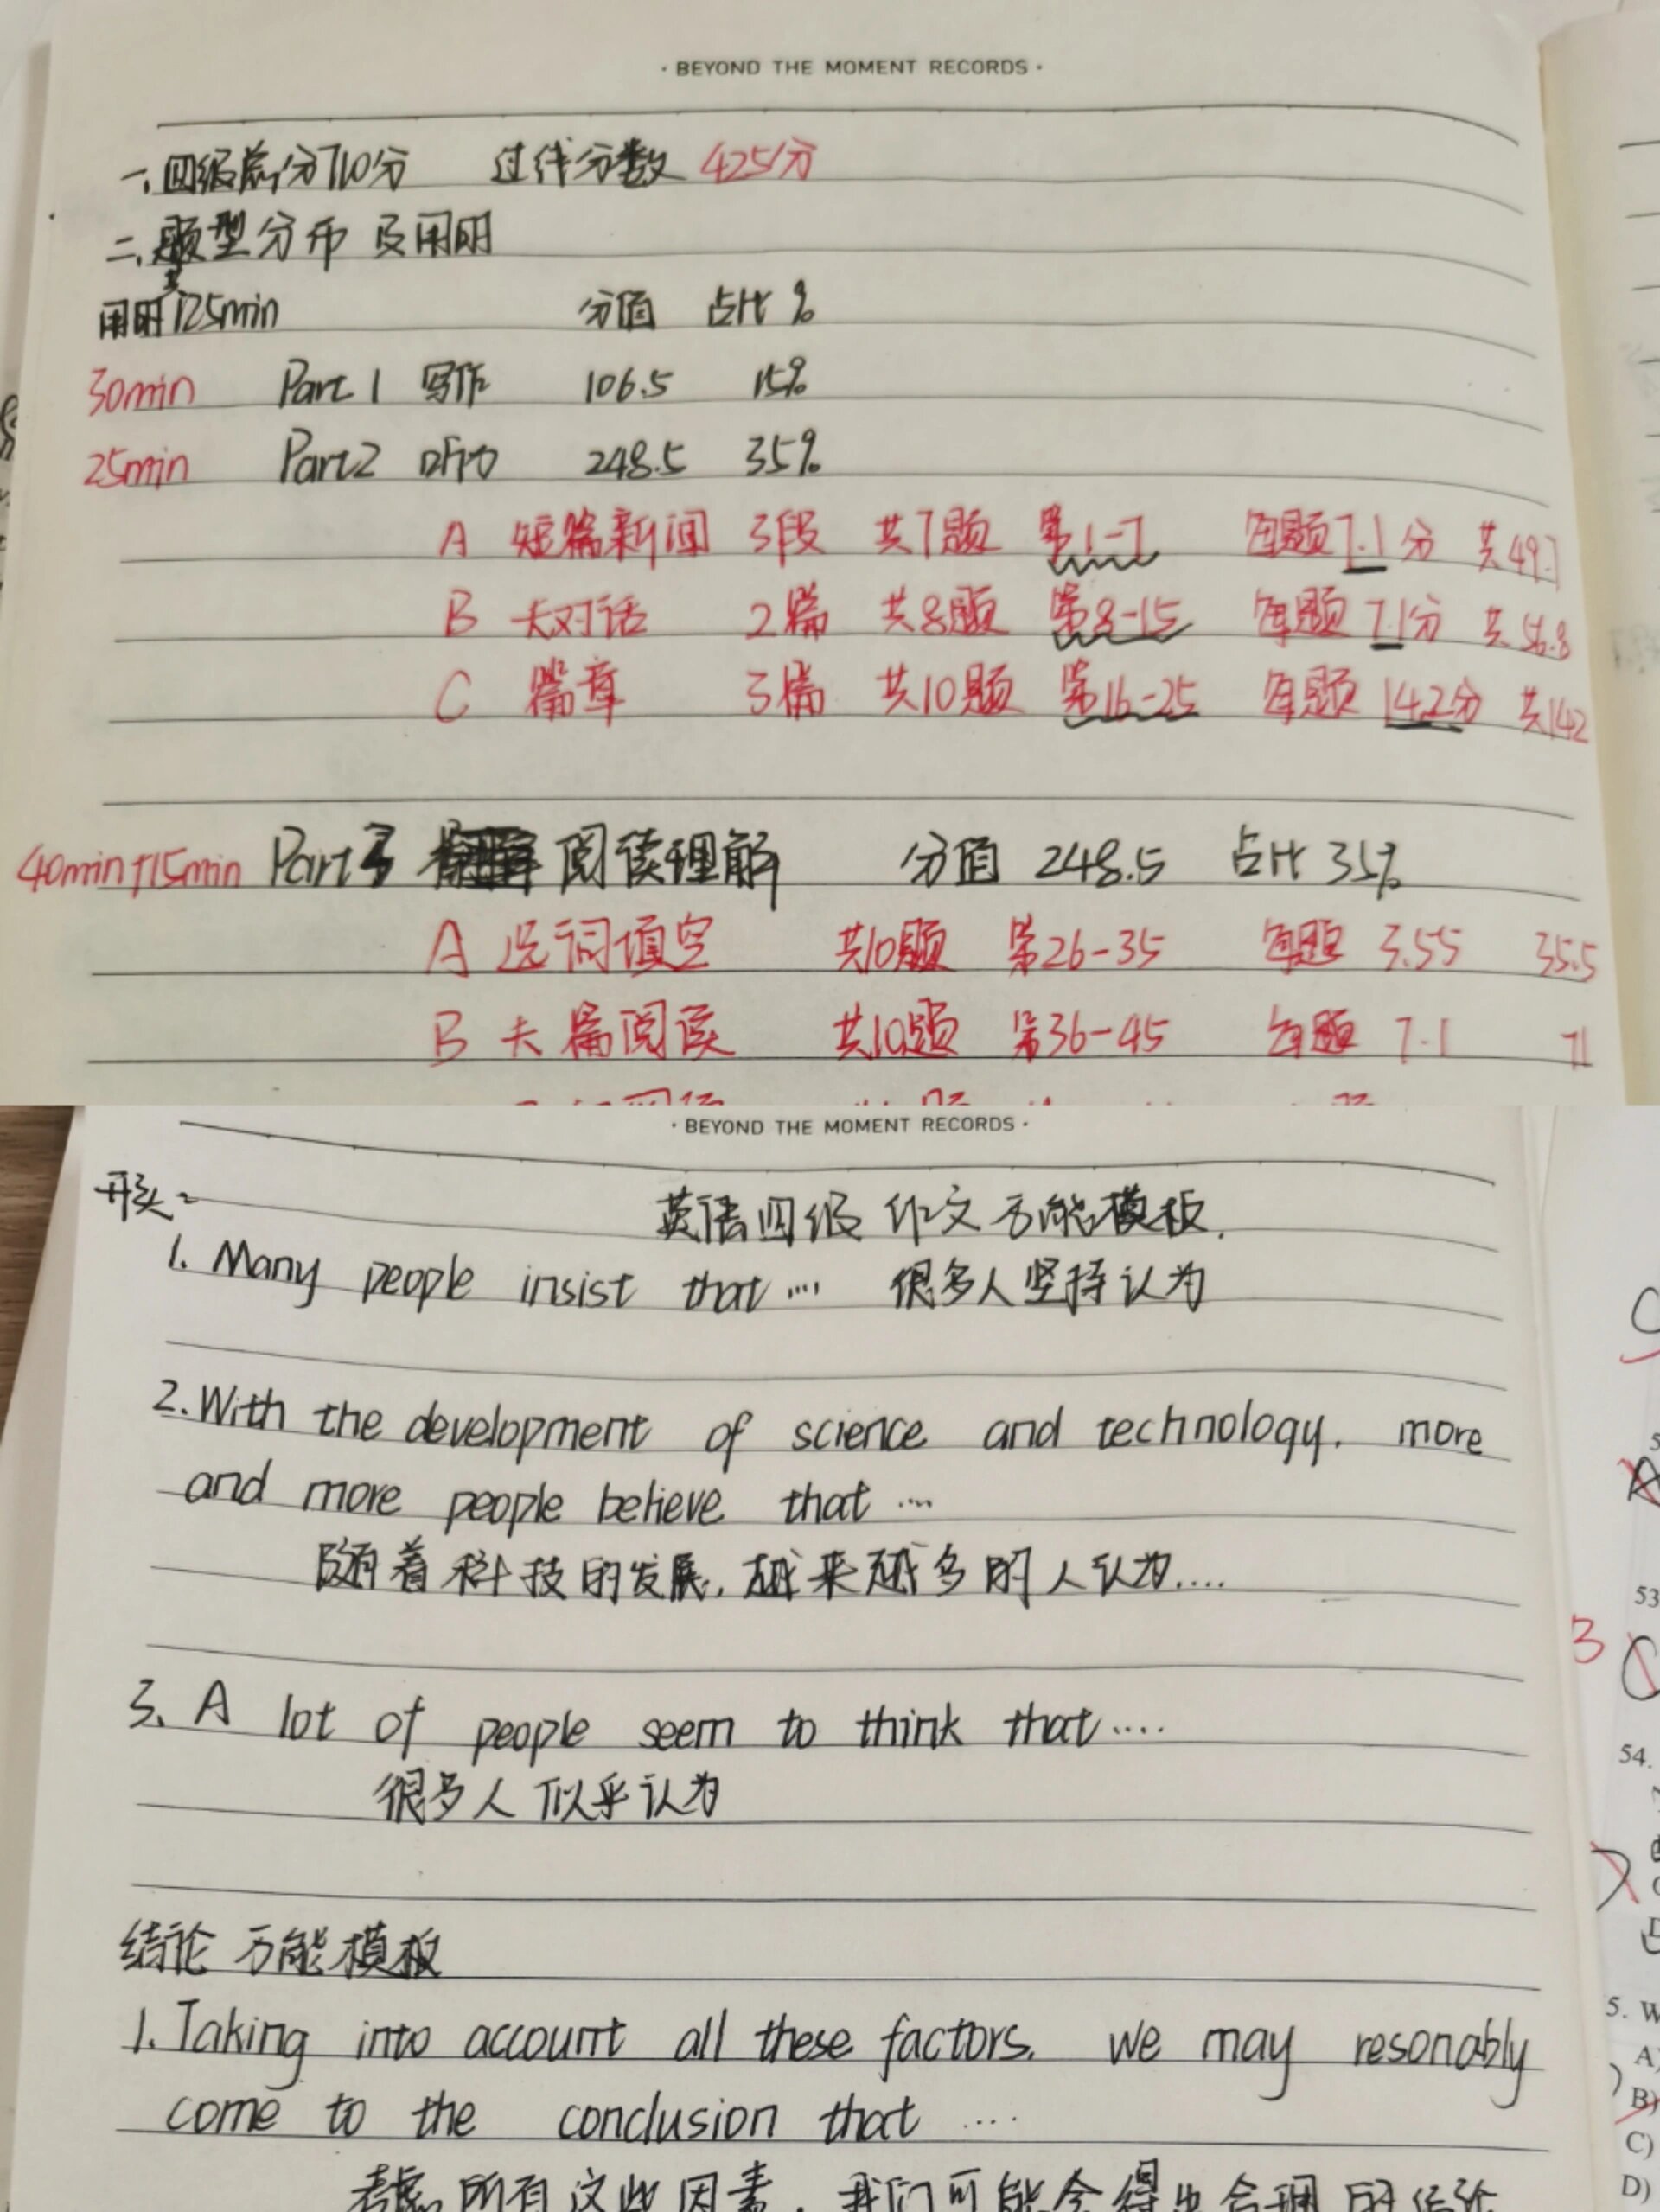 · BEYOND THE MOMENT RECORDS ·
一、四级总分710分 过线分数 425分
二、题型分布及用时
用时125min 分值 占比%
30min Part 1 写作 106.5 15%
25min Part2 听力 248.5 35%
A 短篇新闻 3段 共7题 第1-7 每题7.1分 共49.7
B 长对话 2篇 共8题 第8-15 每题7.1分 共56.8
C 篇章 3篇 共10题 第16-25 每题14.2分 共142
40min+15min Part 3 阅读理解 分值 248.5 占比 35%
A 选词填空 共10题 第26-35 每题 3.55 35.5
B 长篇阅读 共10题 第36-45 每题 7.1 71
· BEYOND THE MOMENT RECORDS ·
开头:
英语四级 作文万能模板.
1. Many people insist that .... 很多人坚持认为
2. With the development of science and technology. more
and more people believe that ...
随着科技的发展, 越来越多的人认为....
3. A lot of people seem to think that ....
很多人似乎认为
结论万能模板
1. Taking into account all these factors. we may resonably
come to the conclusion that ....
考虑所有这些因素, 我们可能会得出合理的结论
53
54.
5. W
A)
B)
C)
D)